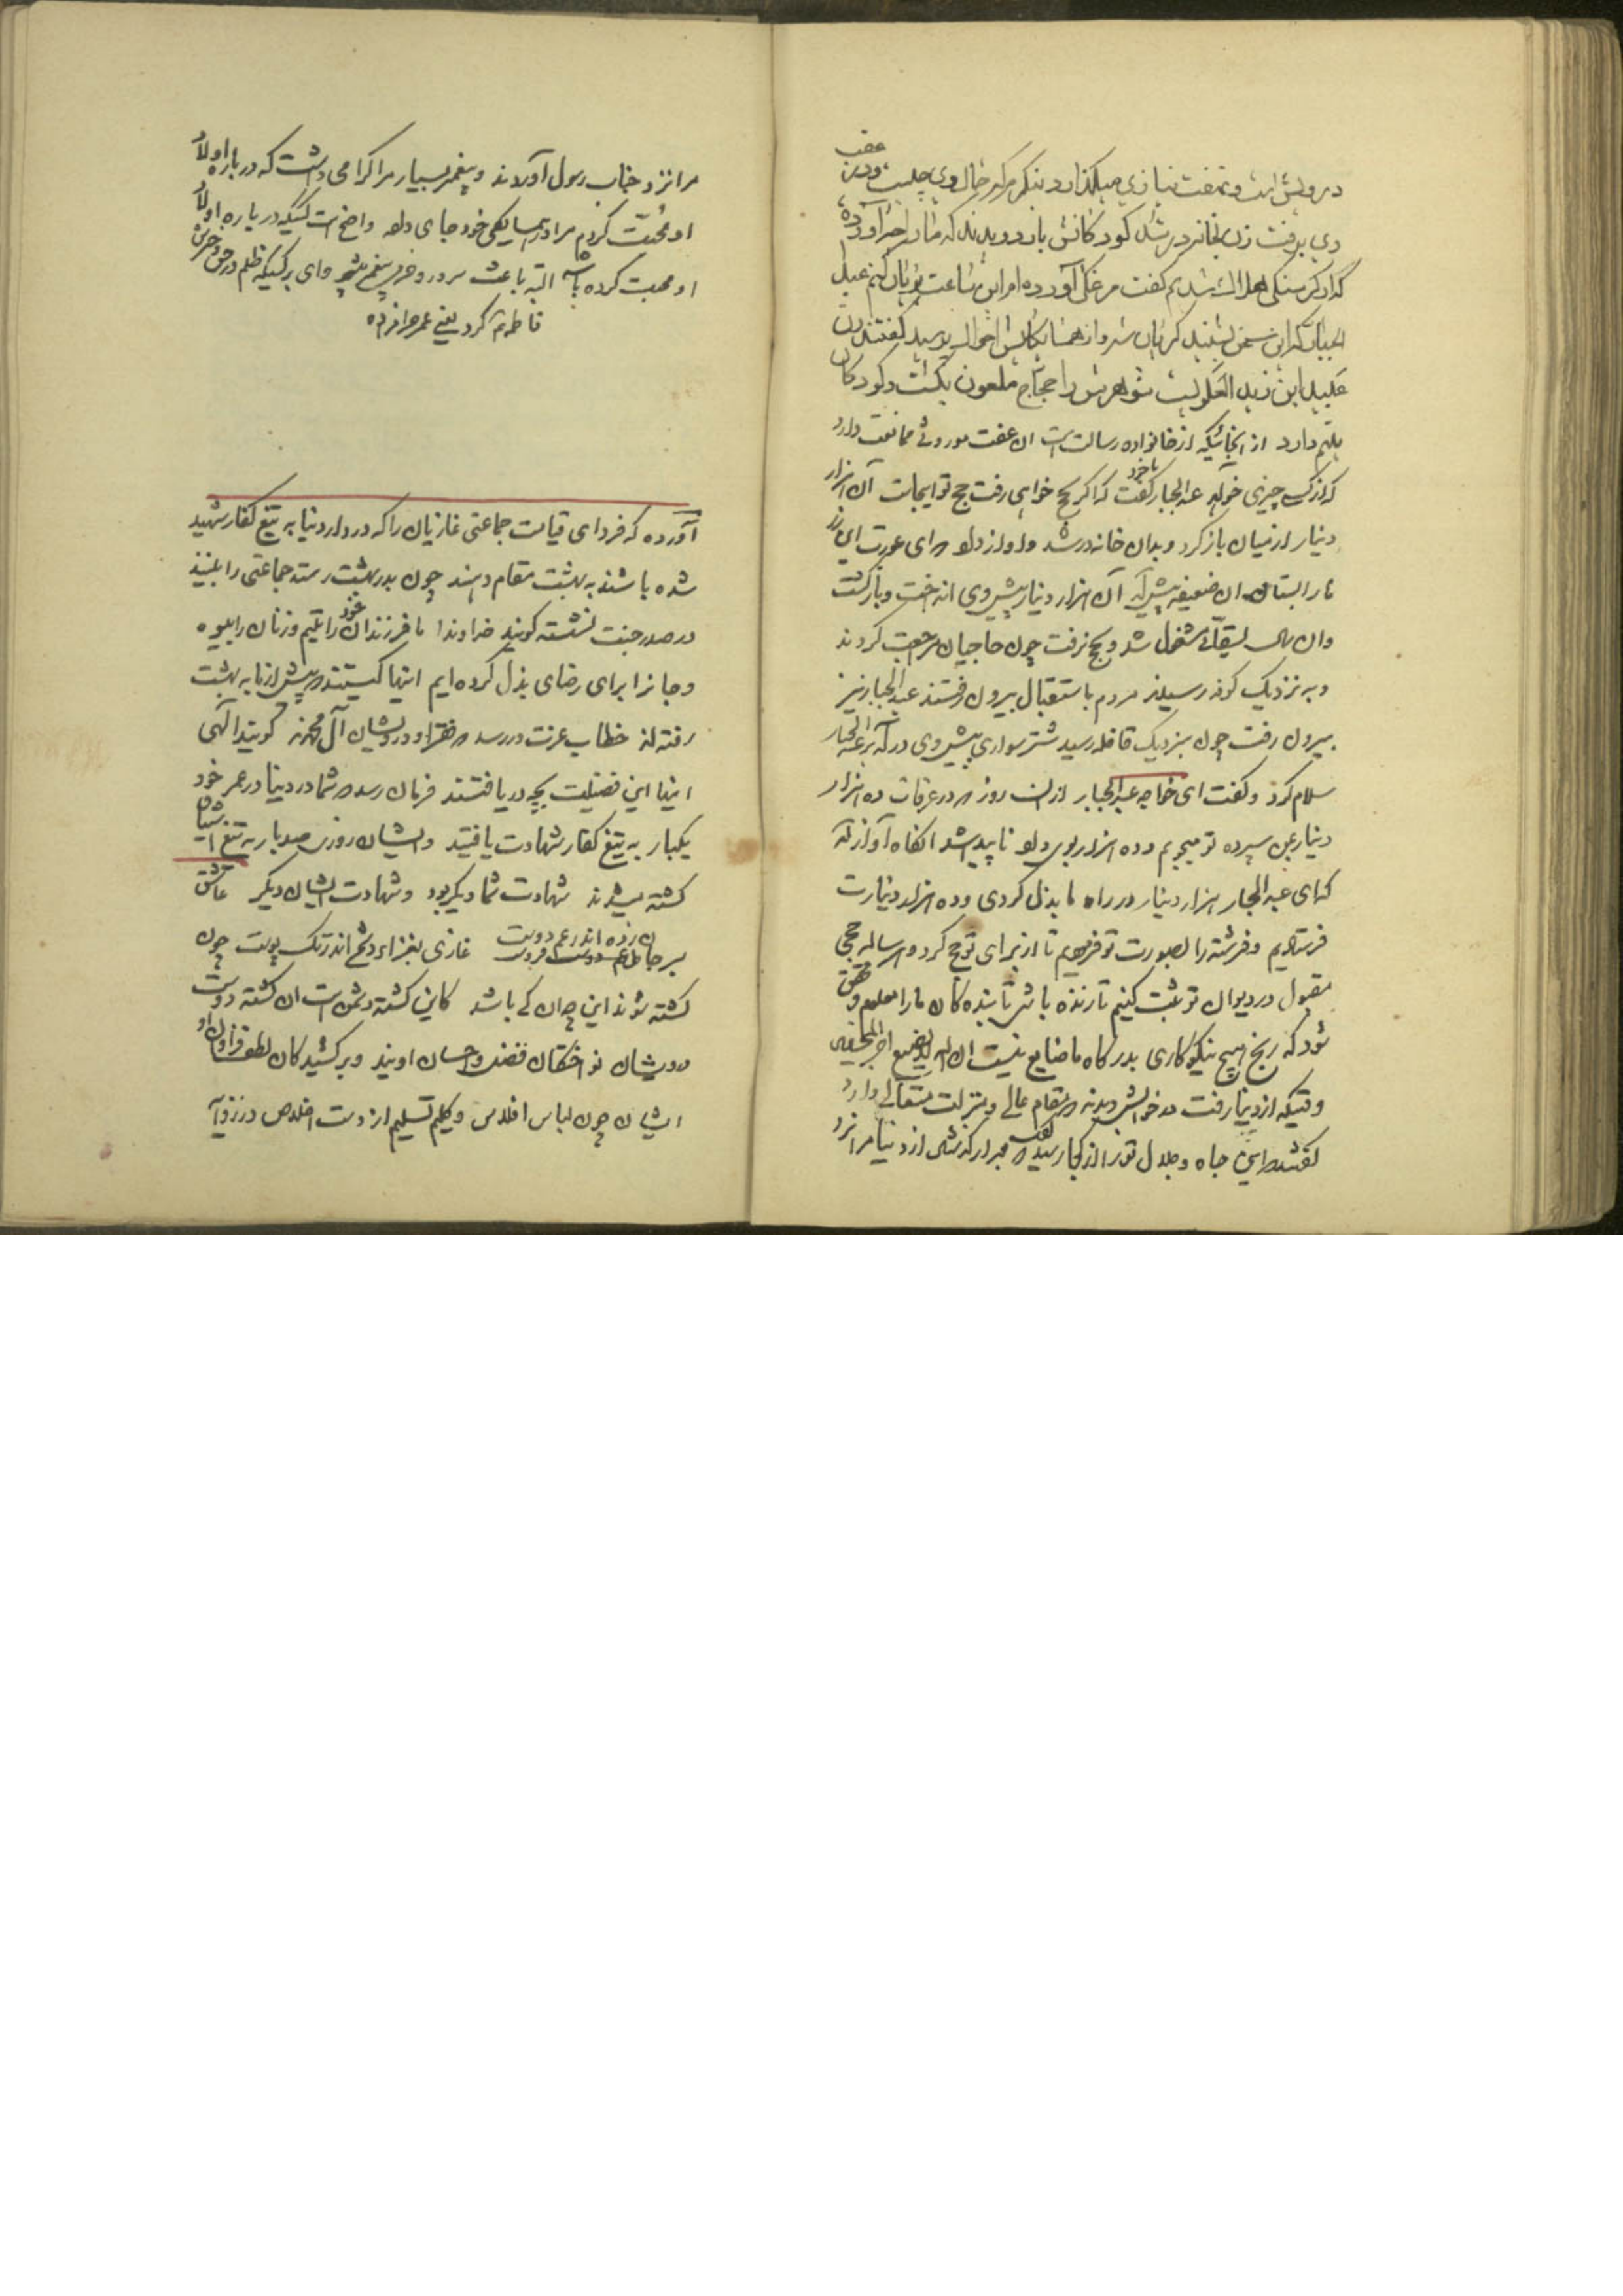 درویش است و بعفت نیازی میگذارد بنگر مرگه حال وی چیست و در عقب
وی برفت زن بخانه درشد کودکانش باز دویدند که مادر چه آورده
که از گرسنگی هلاک شدیم گفت مرغکی آورده ام این ساعت بریان کنم عبد
الجبار که این سخن بشنید گریان شد و از همسایگانش احوال پرسید گفتند زن
عبید ابن زید العلویست شوهرش را حجاج ملعون بکشت و کودکان
یتیم دارد از آنجائیکه از خانواده رسالت است آن عفت موروثی ممانعت دارد
که از کسی چیزی خواهد عبدالجبار با خود گفت که اگر حج خواهی رفت حج تو اینجاست آن هزار
دینار از میان باز کرد و بدان خانه درشد و آواز داد که ای عورت این زر
را بستان آن ضعیفه پیش آمد آن هزار دینار پیش وی انداخت و بازگشت
و آن سال بسقائی مشغول شد و بحج نرفت چون حاجیان مراجعت کردند
و به نزدیک کوفه رسیدند مردم باستقبال بیرون رفتند عبدالجبار نیز
بیرون رفت چون بنزدیک قافله رسید شتر سواری پیش وی درآمد بر عبدالجبار
سلام کرد و گفت ای خواجه عبدالجبار از آن روز که در عرفات ده هزار
دینار بمن سپرده ترا میجویم و ده هزار بوی داد و ناپیدا شد آنگاه آواز آمد
که ای عبدالجبار هزار دینار در راه ما بذل کردی و ده هزار دینارت
فرستادیم و فرشته را بصورت تو آفریدیم تا از برای تو حج کرد و هر ساله حجی
مقبول در دیوان تو ثبت کنیم تا زنده باشی تا بنده گان ما را معلوم و محقق
شود که رنج هیچ نیکوکاری بدرگاه ما ضایع نیست ان الله لا یضیع اجر المحسنین
وقتیکه از دنیا رفت در خوابش دیدند که مقام عالی و منزلت متعالی دارد
گفتند این جاه و جلال تو را از کجا رسید گفت که مجرد گذشتن از دنیا مرا نزد
مرا نزد جناب رسول آوردند و پیغمبر بسیار مرا گرامی داشت که درباره اولاد
او محبت کردم مرا در همسایگی خود جای داد واضح است کسیکه درباره اولاد
او محبت کرده باشد البته باعث سرور و فرح پیغمبر میشود وای بر کسیکه ظلم در حق
فاطمه کرد یعنی عمر حرامزاده
آورده که فردای قیامت جماعتی غازیان را که در دار دنیا به تیغ کفار شهید
شده باشند به بهشت مقام دهند چون بدر بهشت رسند جماعتی را بینند
در صدر جنت نشسته گویند خداوندا ما فرزندان خود را یتیم و زنان را بیوه
و جانرا برای رضای بذل کرده ایم اینها کیستند که پیش از ما به بهشت
رفته اند خطاب عزت دررسد که فقرا و درویشان آل محمدند گویند الهی
اینها این فضیلت بچه دریافتند فرمان رسد که شما در دنیا در عمر خود
یکبار به تیغ کفار شهادت یافتید و ایشان روزی صد بار به تیغ ایشان
کشته میشدند شهادت شما دیگر بود و شهادت ایشان دیگر عاشق
غازی بغزا دشمن اندر تک پوست چون
کشته شوند این چه آن کی باشد کاین کشته دشمن است آن کشته دوست
درویشان نواختگان فضل و احسان اویند و برکشیدگان لطف فراوان او
ایشان چون لباس افلاس و گلیم تسلیم از دست اخلاص در